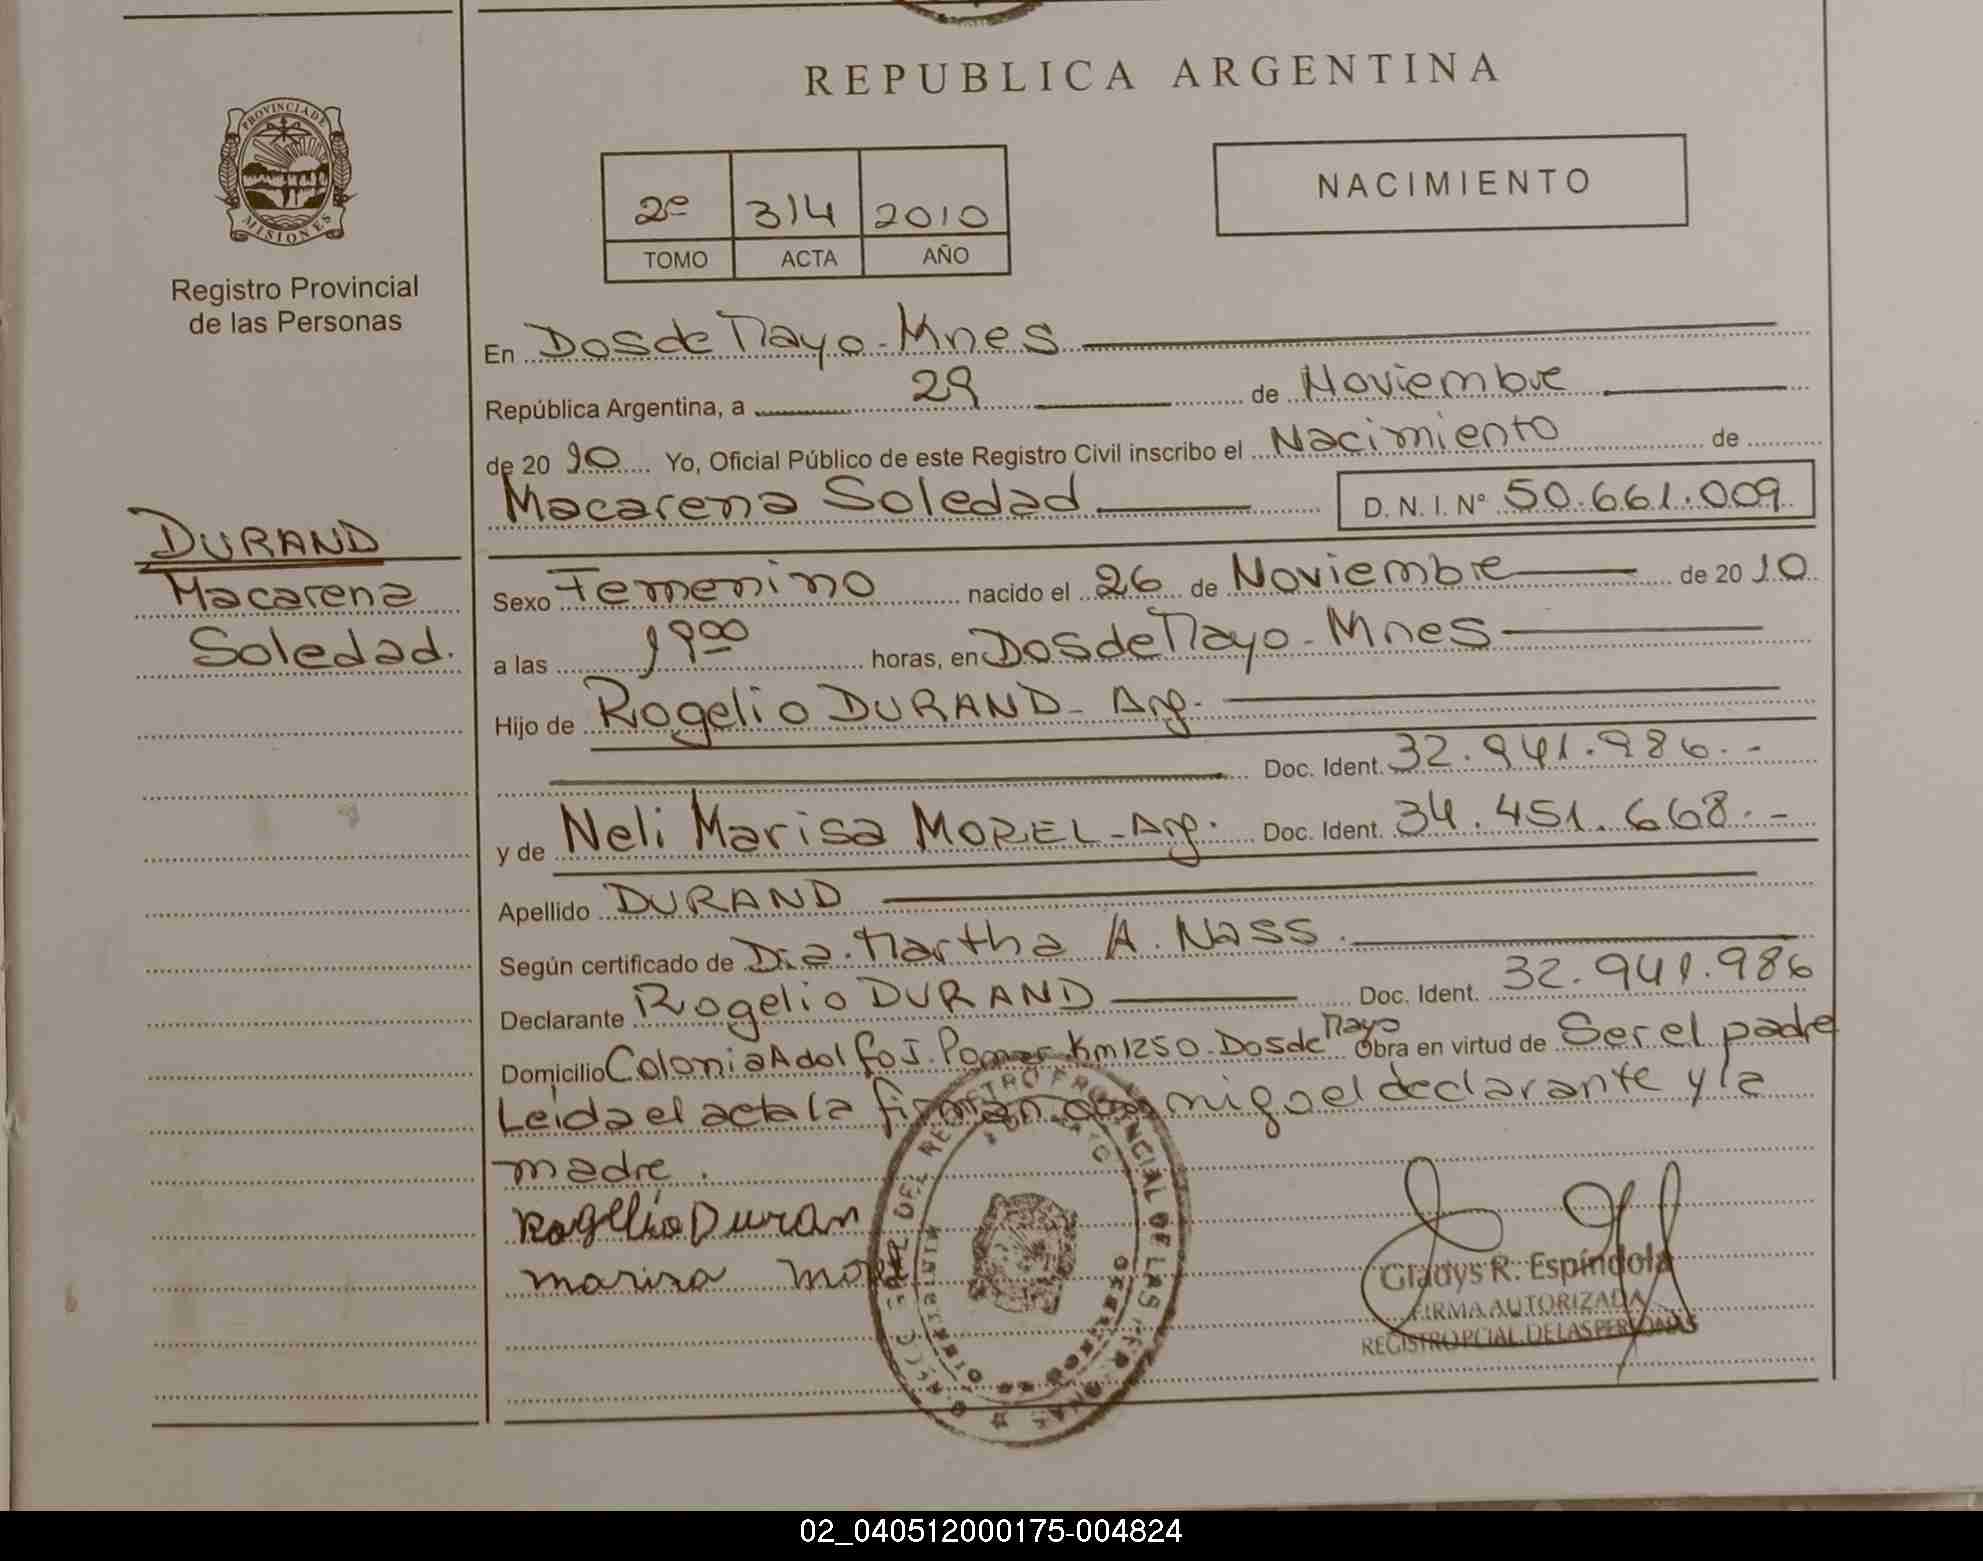 REPUBLICA ARGENTINA
PROVINCIA DE
MISIONES
Registro Provincial
de las Personas
2º 314 2010
TOMO ACTA AÑO
NACIMIENTO
DURAND
Macarena
Soledad.
En Dos de Mayo - Mnes
República Argentina, a 29 de Noviembre
de 20 10 Yo, Oficial Público de este Registro Civil inscribo el Nacimiento de
Macarena Soledad D. N. I. Nº 50.661.009
Sexo Femenino nacido el 26 de Noviembre de 20 10
a las 19:00 horas, en Dos de Mayo - Mnes
Hijo de Rogelio DURAND - Arg.
Doc. Ident. 32.941.986.-
y de Neli Marisa MOREL - Arg. Doc. Ident. 34.451.668.-
Apellido DURAND
Según certificado de Dra. Martha A. Nass.
Declarante Rogelio DURAND Doc. Ident. 32.941.986
Domicilio Colonia Adolfo J. Pomar Km 1250 - Dos de Mayo Obra en virtud de Ser el padre
Leída el acta la firman con migo el declarante y la
madre.
Rogelio Duran
marisa
REGISTRO PROVINCIAL DE LAS
Gladys R. Espíndola
FIRMA AUTORIZADA
REGISTRO PCIAL. DE LAS PERSONAS
02_040512000175-004824